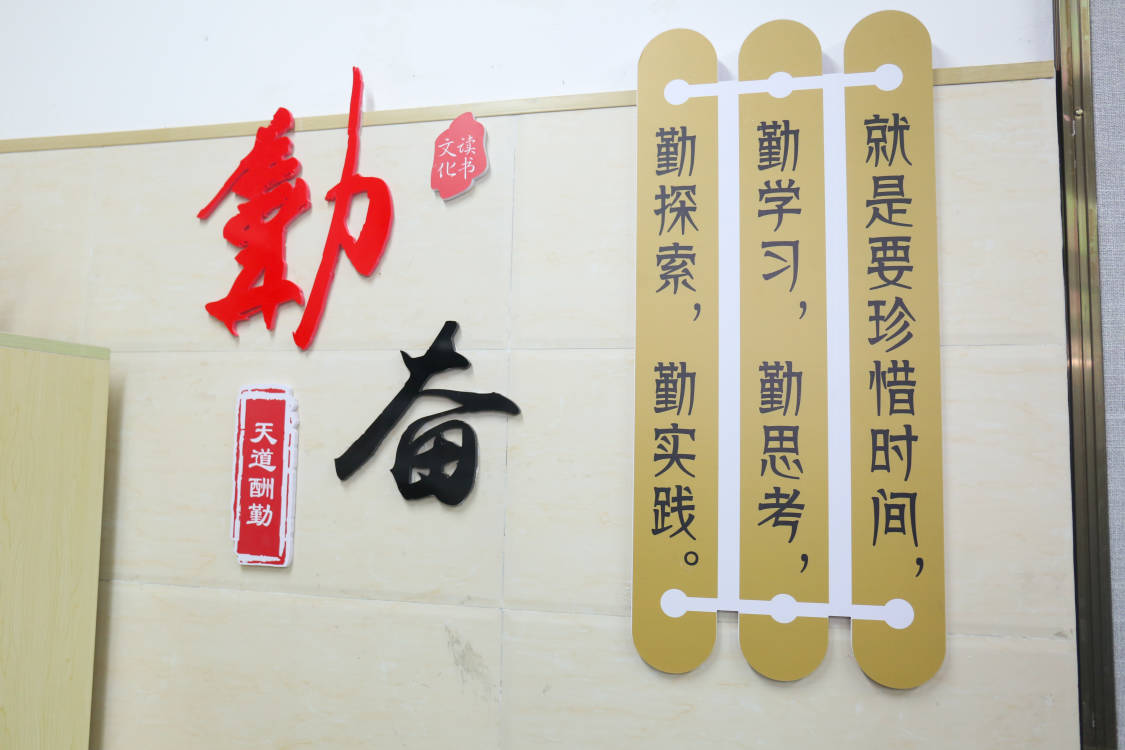 勤奋
读书
文化
天道酬勤
就是要珍惜时间，
勤学习，勤思考，
勤探索，勤实践。